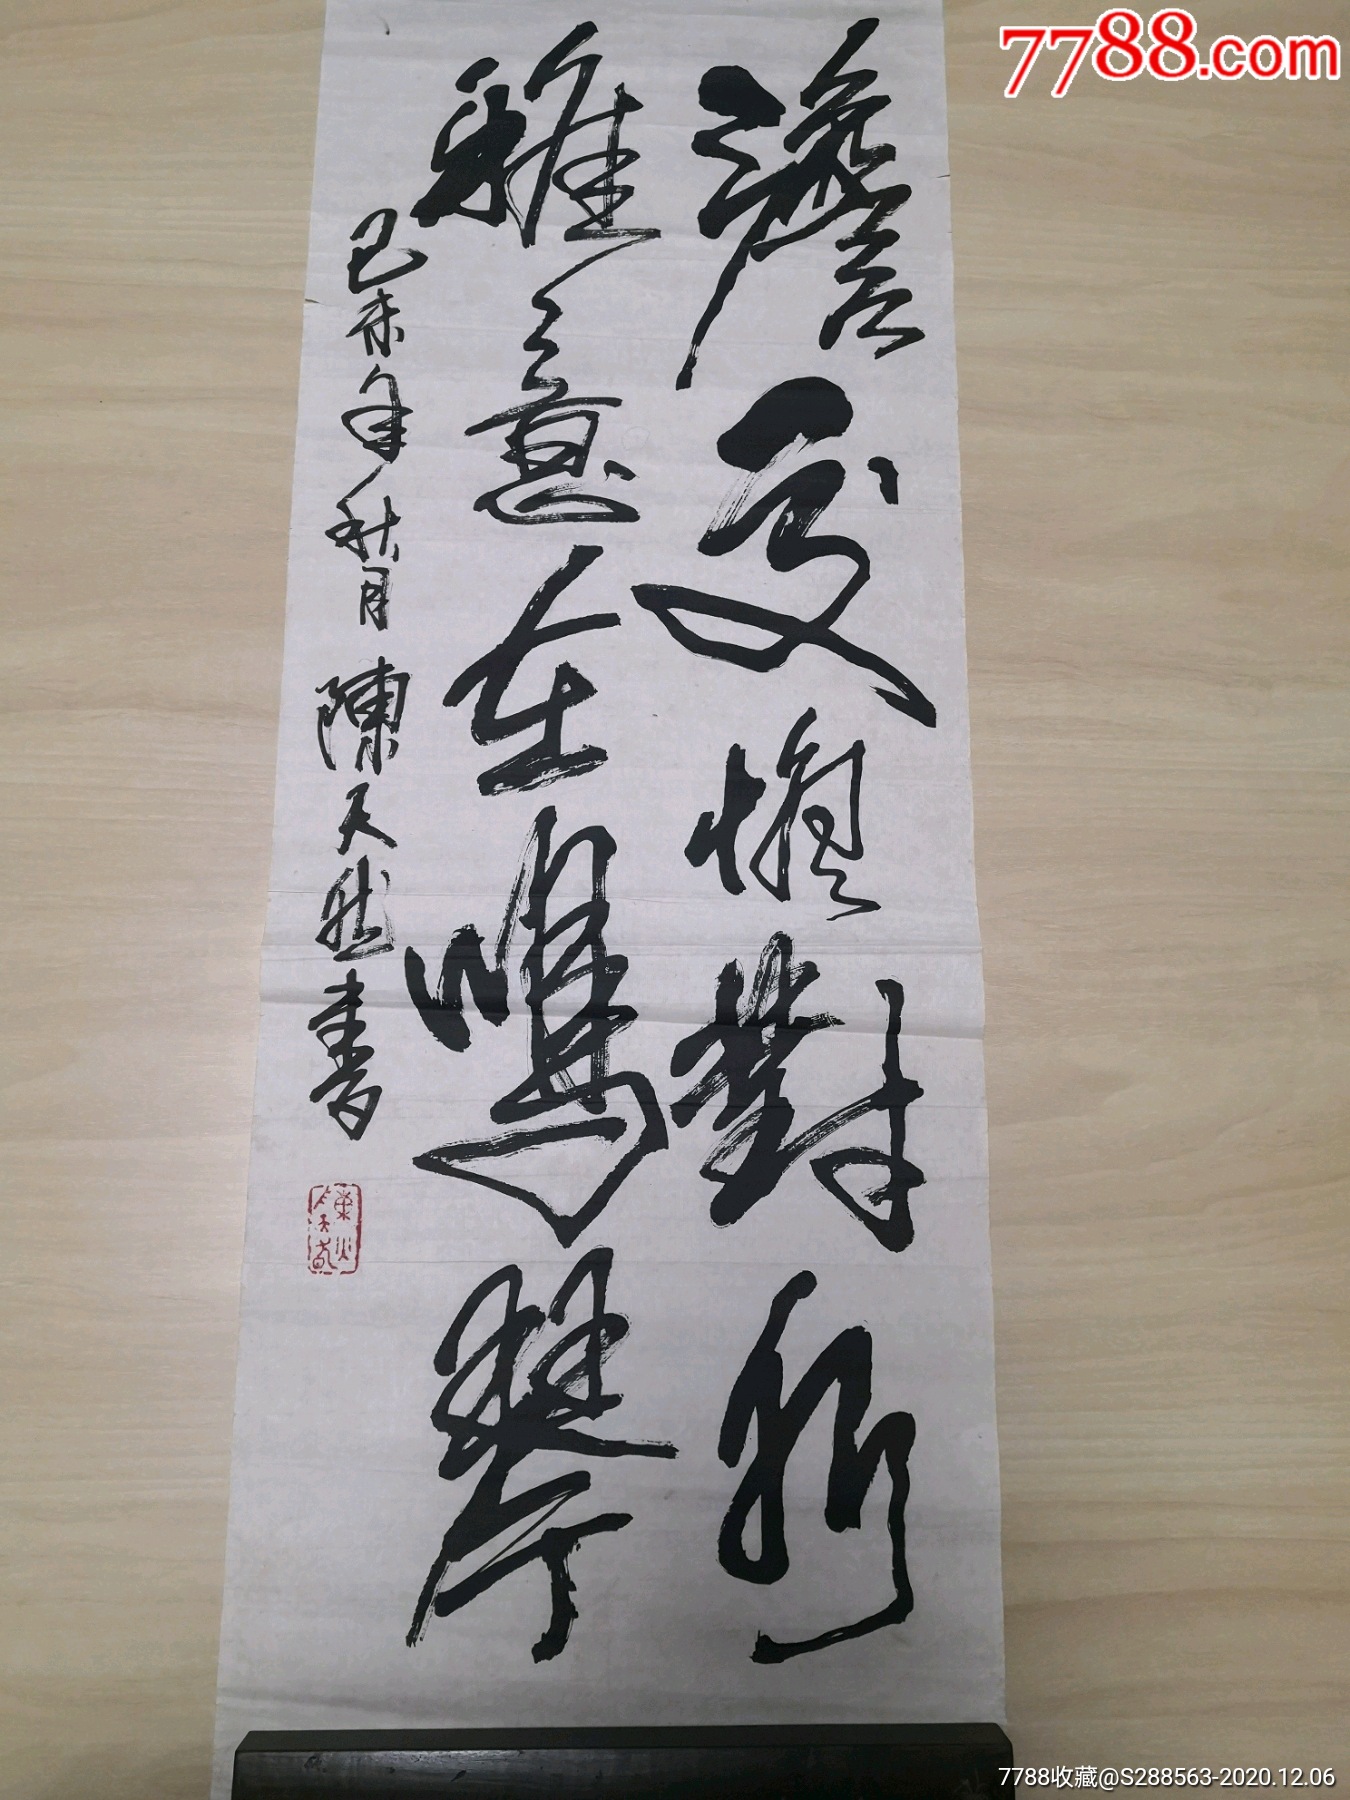 7788.com
澹 對
雅意在鳴琴
己未年秋月 陳天然書
7788收藏@S288563-2020.12.06